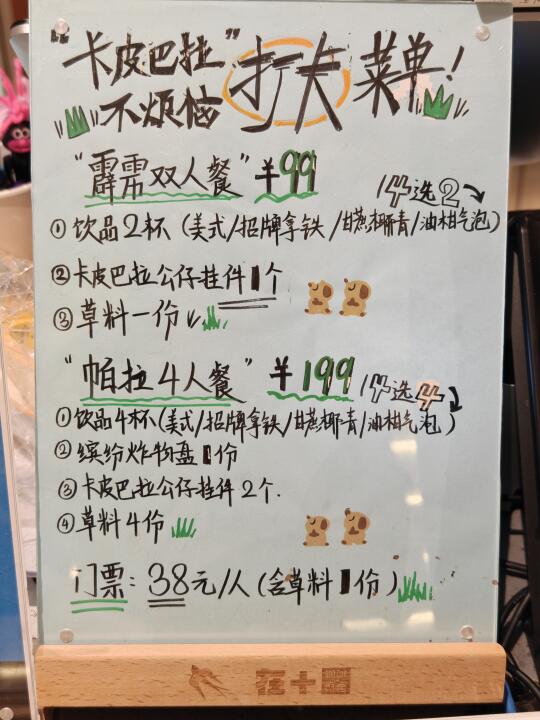 “卡皮巴拉”打夫菜单!
不烦恼
“霹雳双人餐” ¥99
4选2
①饮品2杯(美式/招牌拿铁/甘蔗椰青/油柑气泡)
②卡皮巴拉公仔挂件1个
③草料一份
“帕拉4人餐” ¥199
4选4
①饮品4杯(美式/招牌拿铁/甘蔗椰青/油柑气泡)
②缤纷炸物盘1份
③卡皮巴拉公仔挂件2个.
④草料4份
门票:38元/人(含草料1份)